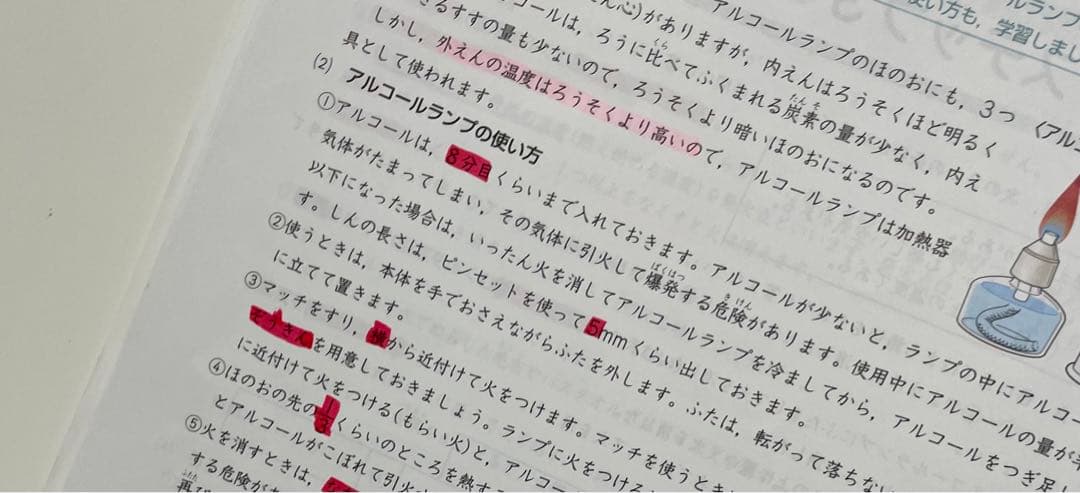 ルランプ
使い方も，学習しまし
アルコールランプのほのおにも，3つ 〈アル
心)がありますが，内えんはろうそくほど明るく
コールは，ろうに比べてふくまれる炭素の量が少なく，内え
きるすすの量も少ないので，ろうそくより暗いほのおになるのです。
しかし，外えんの温度はろうそくより高いので，アルコールランプは加熱器
具として使われます。
(2) アルコールランプの使い方
①アルコールは，8分目くらいまで入れておきます。アルコールが少ないと，ランプの中にアルコー
気体がたまってしまい，その気体に引火して爆発する危険があります。使用中にアルコールの量が半
以下になった場合は，いったん火を消してアルコールランプを冷ましてから，アルコールをつぎ足し
す。しんの長さは，ピンセットを使って5mmくらい出しておきます。
②使うときは，本体を手でおさえながらふたを外します。ふたは，転がって落ちない
に立てて置きます。
③マッチをすり，横から近付けて火をつけます。マッチを使うとき
ぞうきんを用意しておきましょう。ランプに火をつける
に近付けて火をつける(もらい火)と，アルコー
④ほのおの先の1/3くらいのところを熱す
とアルコールがこぼれて引火
⑤火を消すときは，
する危険があ
再び